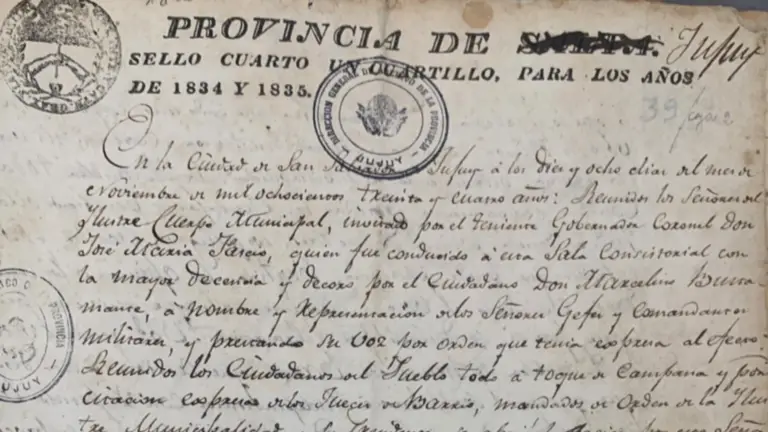 PROVINCIA DE SALTA. Jujuy
SELLO CUARTO UN CUARTILLO, PARA LOS AÑOS
DE 1834 Y 1835.
39
DIRECCION GENERAL DE LA PROVINCIA JUJUY
En la Ciudad de San Jujuy á los diez y ocho dias del mes de
Noviembre de mil ochocientos treinta y cuatro años: Reunidos los Señores del
Ilustre Cuerpo Municipal, invitado por el teniente Gobernador Coronel Don
José Maria Fascio, quien fue conducido á esta Sala Consistorial con
la mayor decencia y decoro por el Ciudadano Don Marcelino Busta-
mante, á nombre y representacion de los Señores Gefes y Comandantes
militares, y prestando su voz por orden que tenia expresa al efecto:
Reunidos los Ciudadanos del Pueblo todo á toque de Campana y por
citacion expresa de los Jueces de Barrio, mandados de Orden de la Ilus-
tre Municipalidad
PROVINCIA
JUJUY